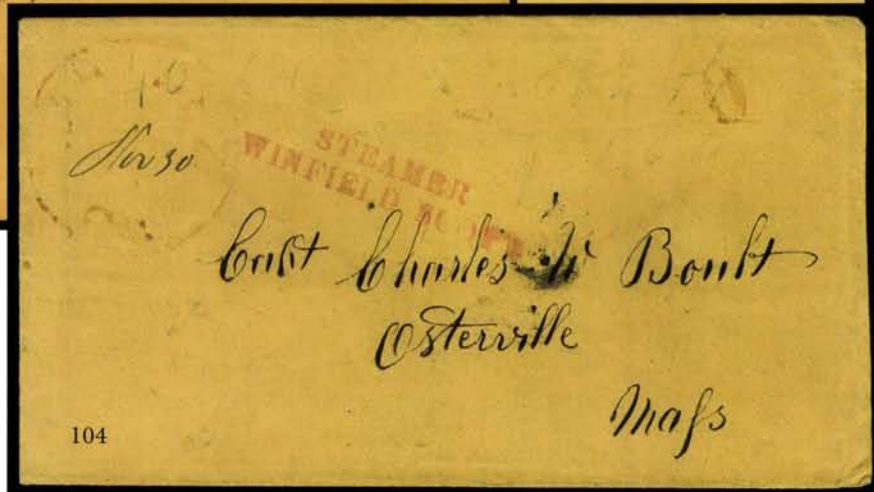 40
Nov 30
STEAMER
WINFIELD SCOTT
Capt Charles W
Osterville
Mass
104